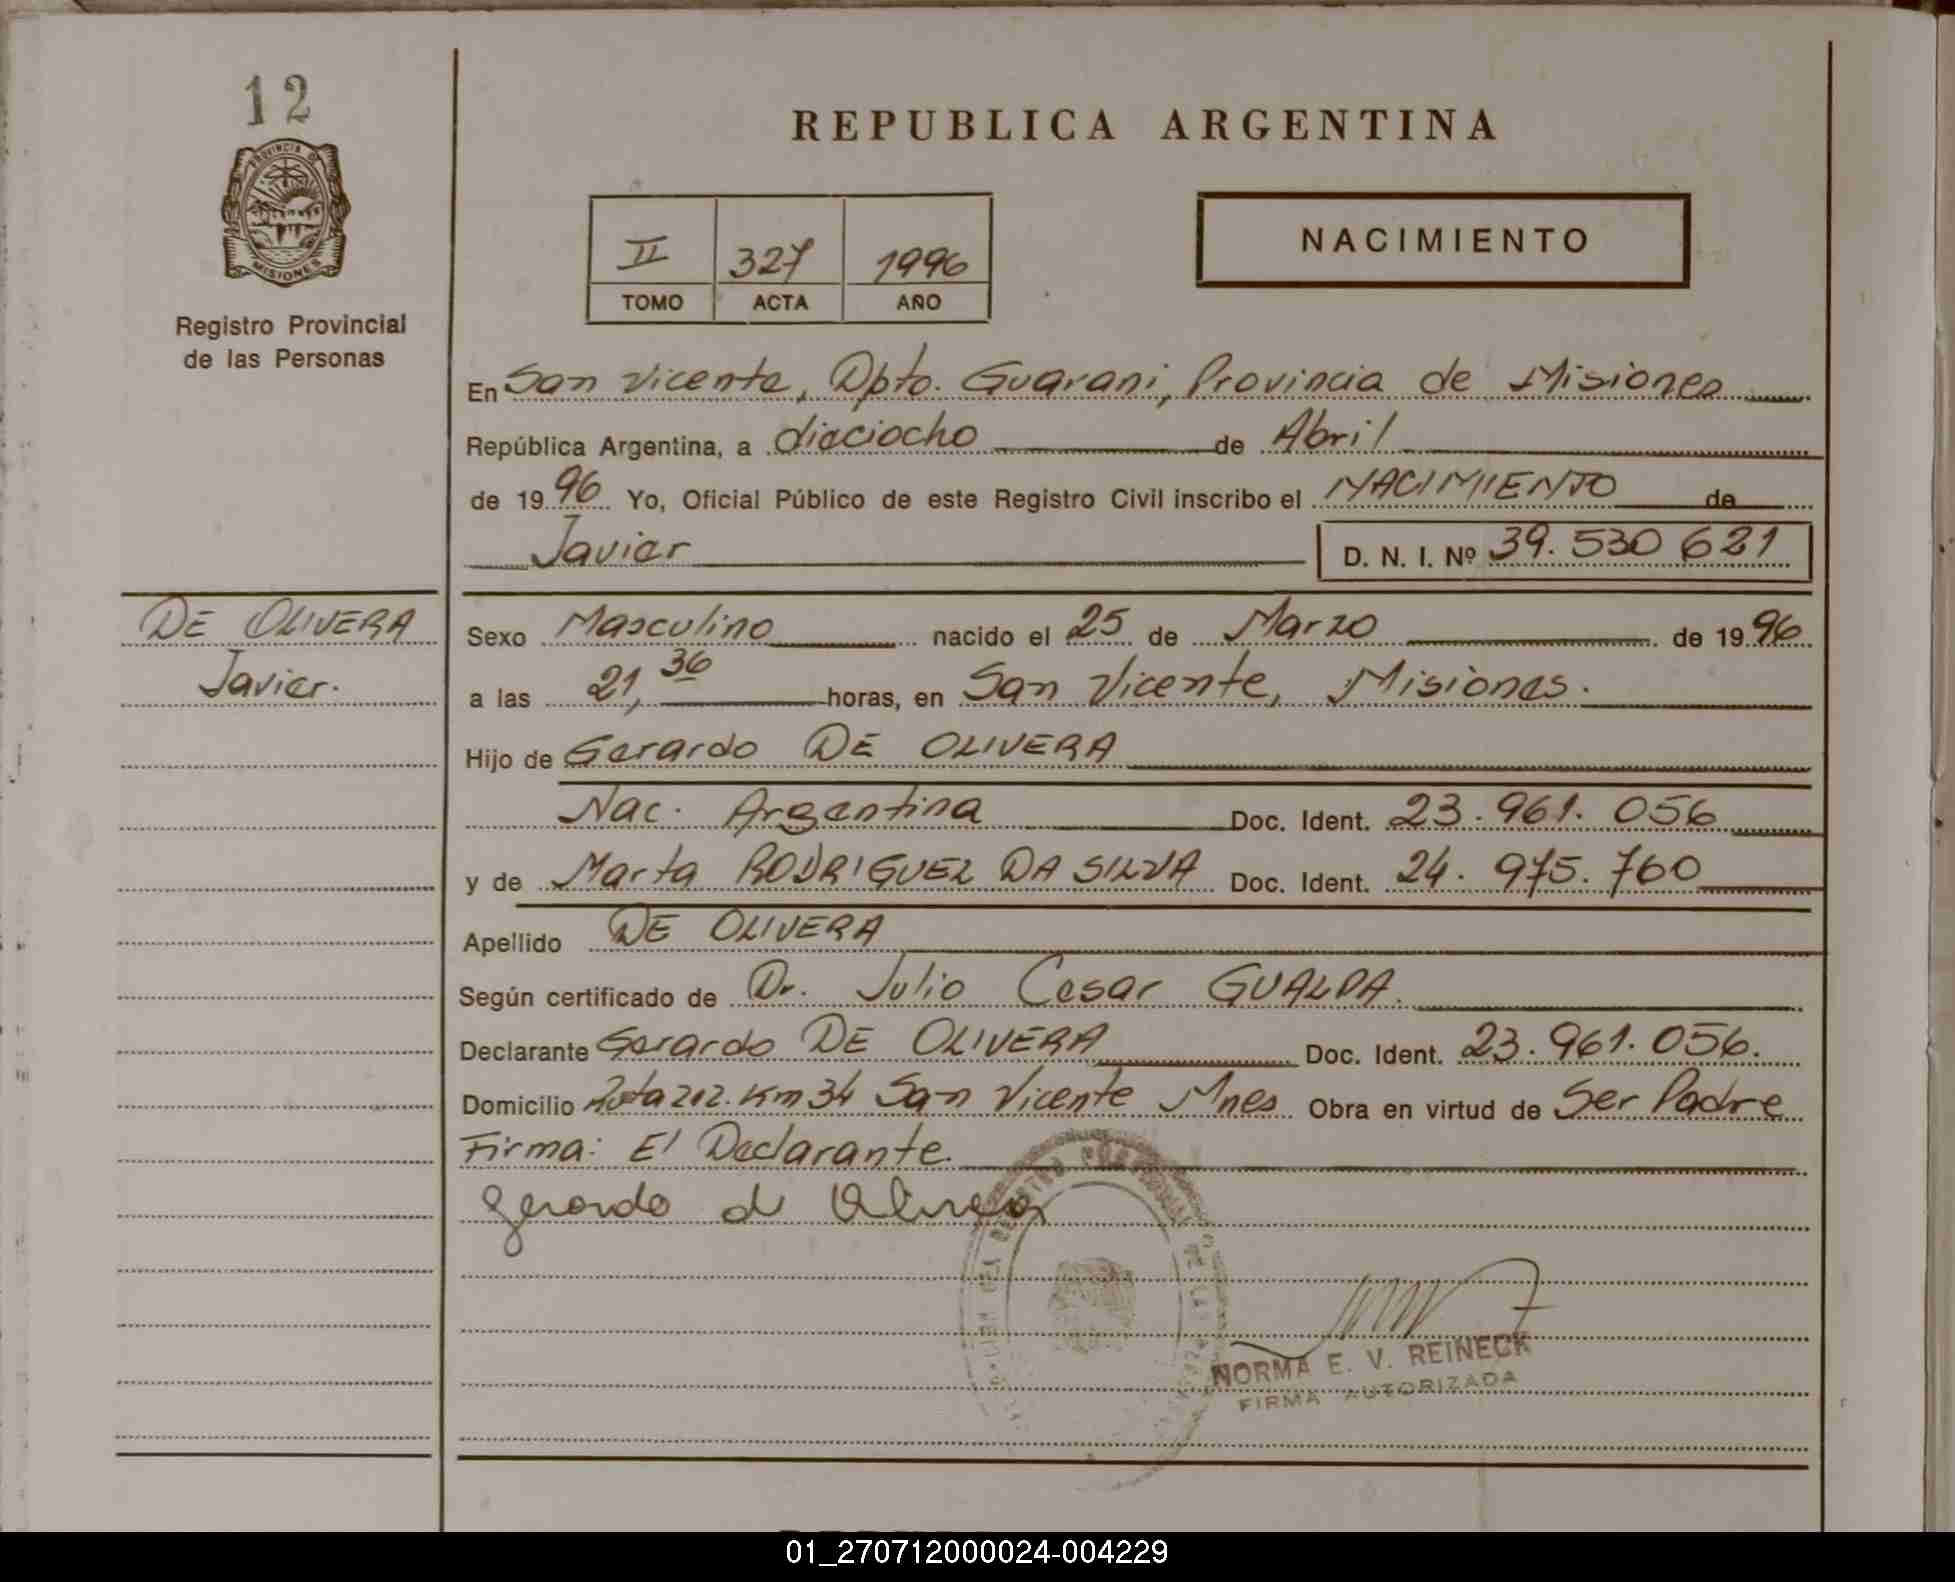 12
PROVINCIA DE
MISIONES
Registro Provincial
de las Personas
REPUBLICA ARGENTINA
II 327 1996
TOMO ACTA AÑO
NACIMIENTO
En San Vicente, Dpto. Guarani, Provincia de Misiones
República Argentina, a dieciocho de Abril
de 1996 Yo, Oficial Público de este Registro Civil inscribo el NACIMIENTO de
Javier D. N. I. Nº 39.530 621
DE OLIVERA
Javier.
Sexo Masculino nacido el 25 de Marzo de 1996
a las 21,36 horas, en San Vicente, Misiones.
Hijo de Gerardo DE OLIVERA
Nac. Argentina Doc. Ident. 23.961.056
y de Marta RODRIGUEZ DA SILVA Doc. Ident. 24.975.760
Apellido DE OLIVERA
Según certificado de Dr. Julio Cesar GUALDA.
Declarante Gerardo DE OLIVERA Doc. Ident. 23.961.056.
Domicilio Ruta 212. Km 34 San Vicente Mnes Obra en virtud de Ser Padre
Firma: El Declarante.
Gerardo de Olivera
NORMA E. V. REINECK
FIRMA AUTORIZADA
01_270712000024-004229